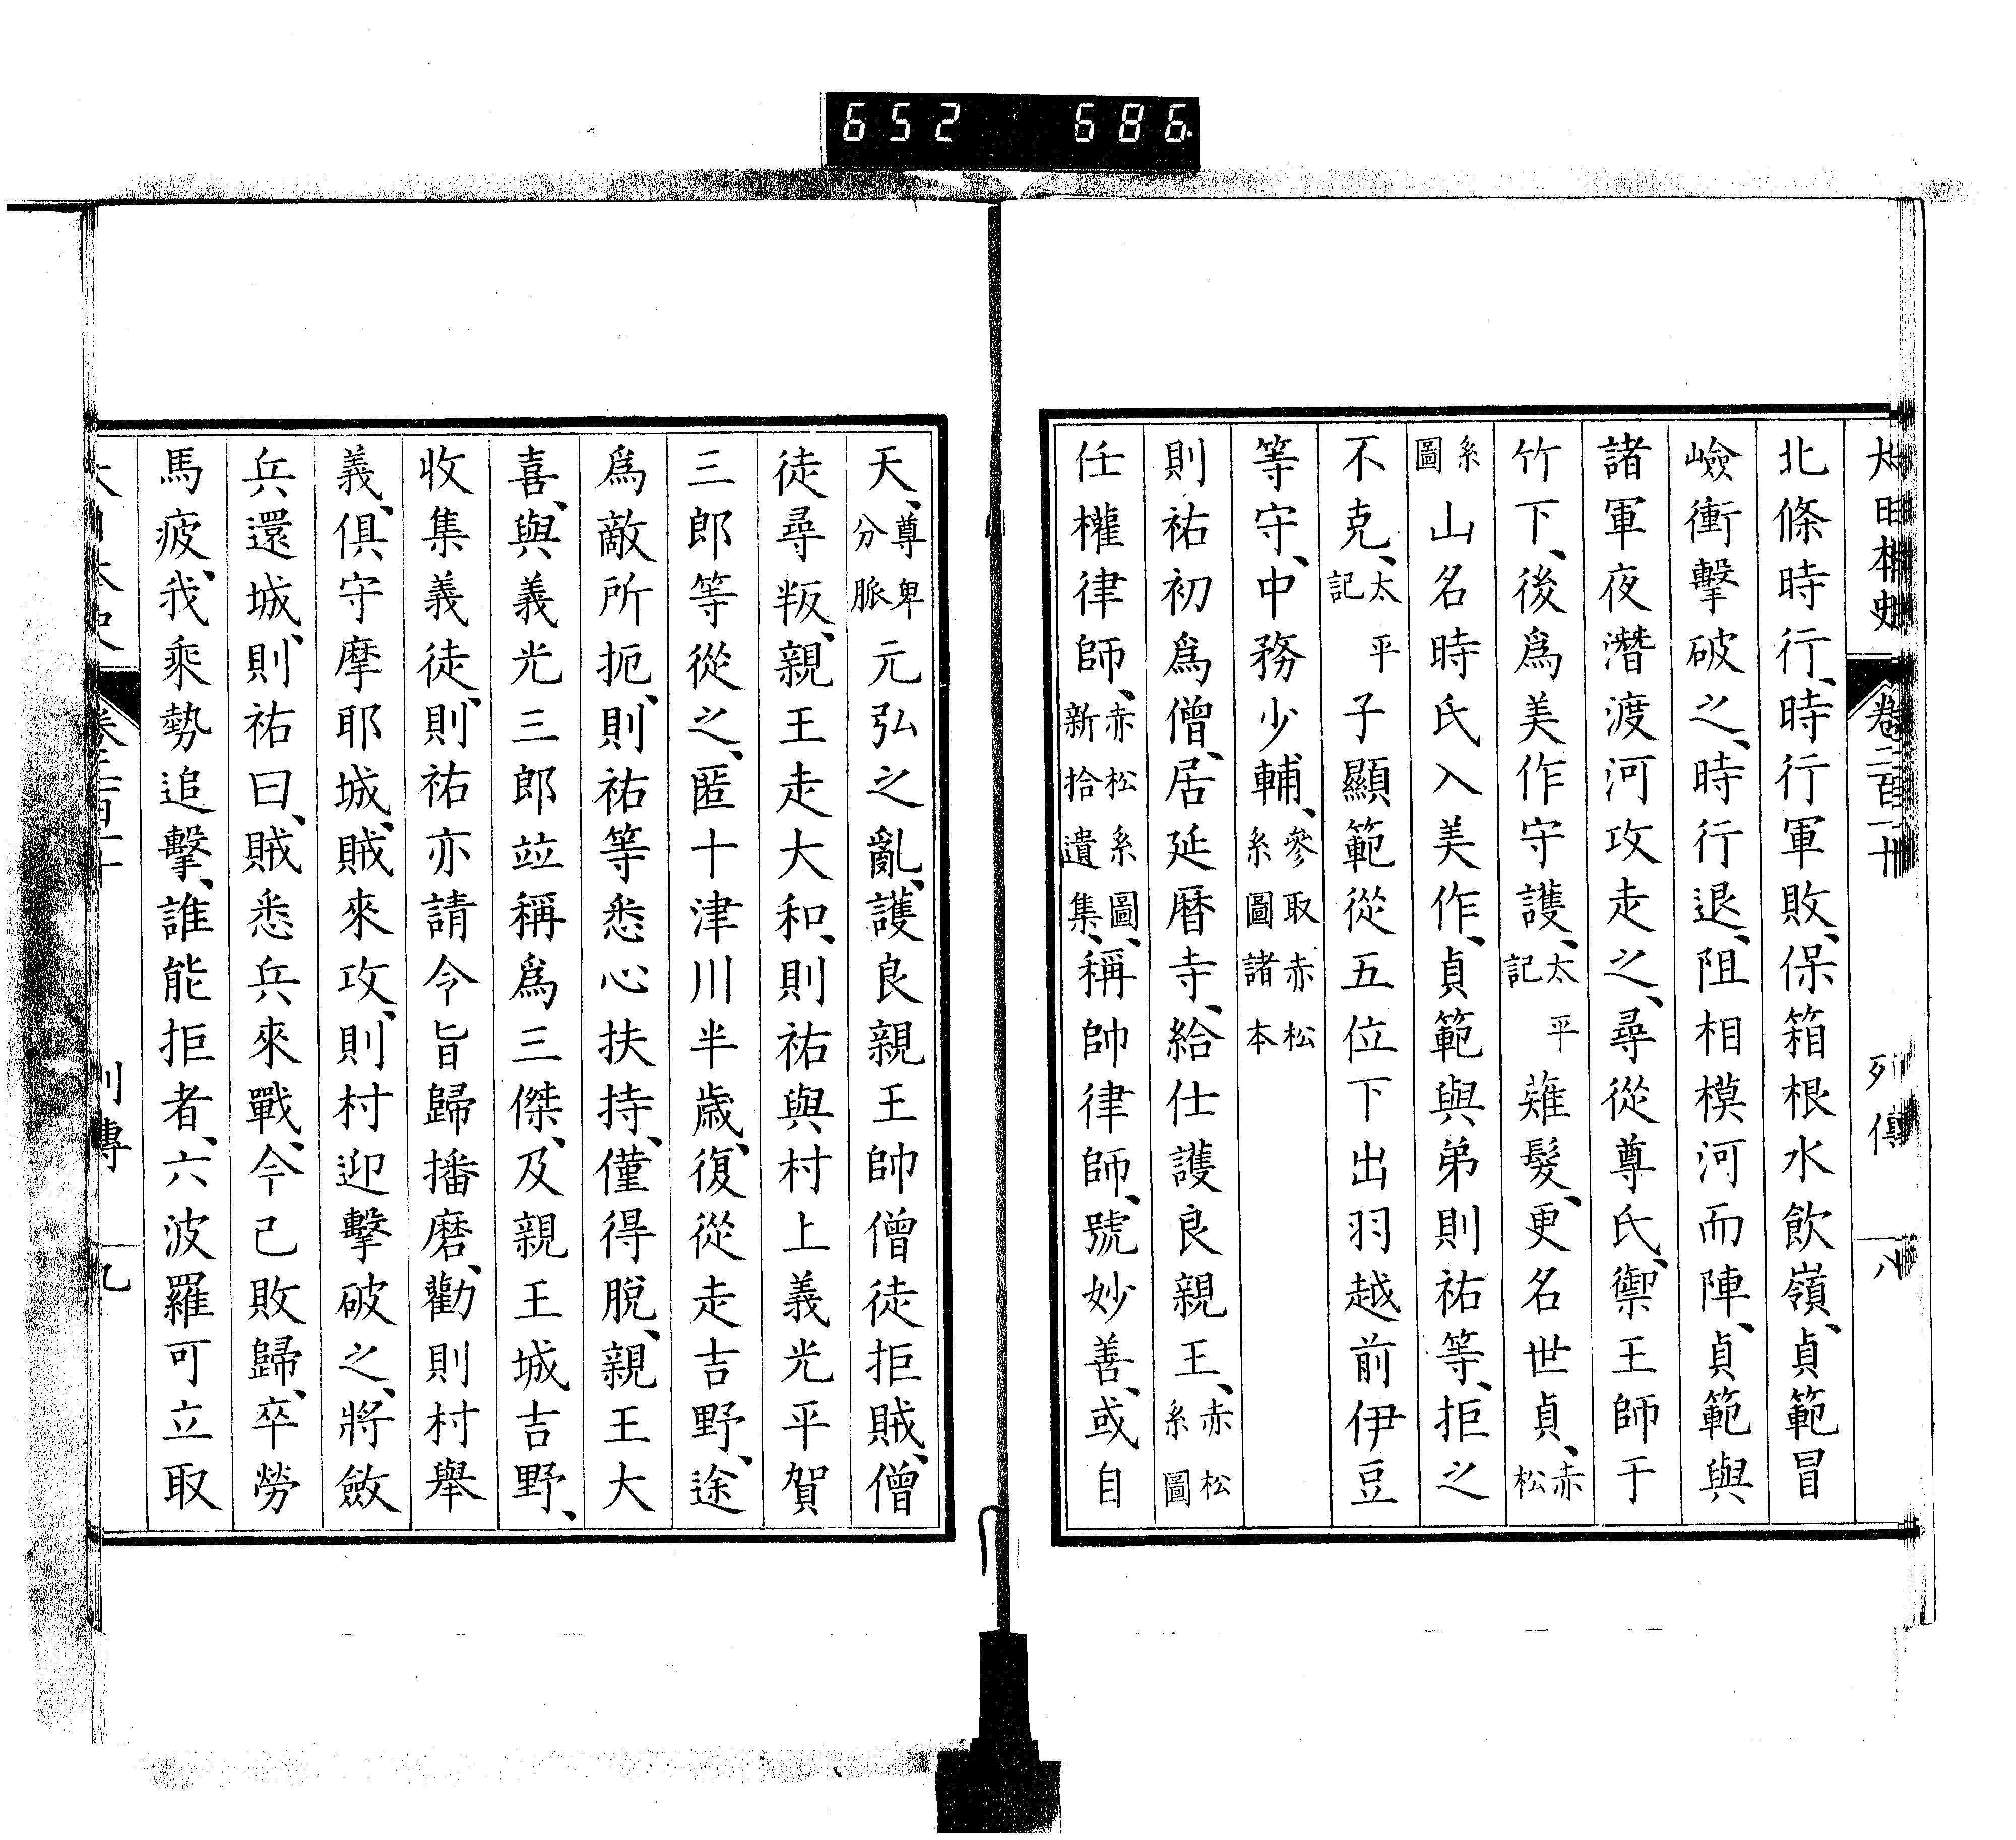 652 686
大日本史 卷二百二十 列傳 八
北條時行、時行軍敗、保箱根水飲嶺、貞範冒
嶮衝擊破之、時行退、阻相模河而陣、貞範與
諸軍夜潛渡河攻走之、尋從尊氏、禦王師于
竹下、後爲美作守護、太平記薙髮、更名世貞、赤松
系圖山名時氏入美作、貞範與弟則祐等、拒之
不克、太平記子顯範從五位下出羽越前伊豆
等守、中務少輔、參取赤松系圖諸本
則祐初爲僧、居延曆寺、給仕護良親王、赤松系圖
任權律師、赤松系圖、新拾遺集、稱帥律師、號妙善、或自
天、尊卑分脈元弘之亂、護良親王帥僧徒拒賊、僧
徒尋叛、親王走大和、則祐與村上義光平賀
三郎等從之、匿十津川半歲、復從走吉野、途
爲敵所扼、則祐等悉心扶持、僅得脫、親王大
喜、與義光三郎竝稱爲三傑、及親王城吉野、
收集義徒、則祐亦請令旨歸播磨、勸則村舉
義、俱守摩耶城、賊來攻、則村迎擊破之、將斂
兵還城、則祐曰、賊悉兵來戰、今已敗歸、卒勞
馬疲、我乘勢追擊、誰能拒者、六波羅可立取
列傳 九